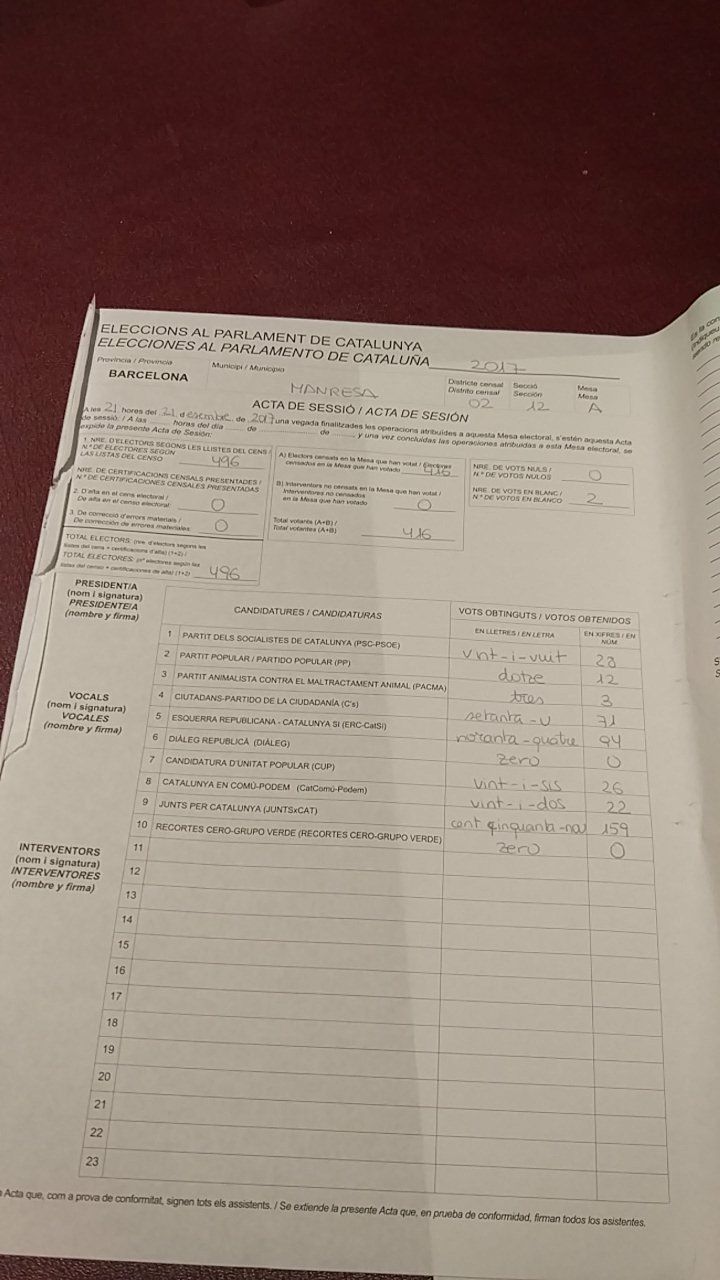 ELECCIONS AL PARLAMENT DE CATALUNYA
ELECCIONES AL PARLAMENTO DE CATALUÑA 2017
Provincia / Provincia Municipi / Municipio Districte censal Secció Mesa
Distrito censal Sección Mesa
BARCELONA MANRESA 02 12 A
ACTA DE SESSIÓ / ACTA DE SESIÓN
A les 21 hores del 21 d desembre de 2017 una vegada finalitzades les operacions atribuïdes a aquesta Mesa electoral, s'estén aquesta Acta
de sessió. / A las ____ horas del día ____ de ____ de ____, y una vez concluidas las operaciones atribuidas a esta Mesa electoral, se
expide la presente Acta de Sesión:
1. NRE. D'ELECTORS SEGONS LES LLISTES DEL CENS /
N.º DE ELECTORES SEGÚN
LAS LISTAS DEL CENSO 496
NRE. DE CERTIFICACIONS CENSALS PRESENTADES /
N.º DE CERTIFICACIONES CENSALES PRESENTADAS
2. D'alta en el cens electoral /
De alta en el censo electoral: 0
3. De correcció d'errors materials /
De corrección de errores materiales: 0
TOTAL ELECTORS: (nre. d'electors segons les
llistes del cens + certificacions d'alta) (1+2) /
TOTAL ELECTORES: (nº electores según las
listas del censo + certificaciones de alta) (1+2) 496
A) Electors censats en la Mesa que han votat / Electores
censados en la Mesa que han votado 416
B) Interventors no censats en la Mesa que han votat /
Interventores no censados
en la Mesa que han votado 0
Total votants (A+B) /
Total votantes (A+B) 416
NRE. DE VOTS NULS /
N.º DE VOTOS NULOS 0
NRE. DE VOTS EN BLANC /
N.º DE VOTOS EN BLANCO 2
PRESIDENT/A
(nom i signatura)
PRESIDENTE/A
(nombre y firma)
VOCALS
(nom i signatura)
VOCALES
(nombre y firma)
INTERVENTORS
(nom i signatura)
INTERVENTORES
(nombre y firma)
CANDIDATURES / CANDIDATURAS VOTS OBTINGUTS / VOTOS OBTENIDOS
EN LLETRES / EN LETRA EN XIFRES / EN NÚM.
1 PARTIT DELS SOCIALISTES DE CATALUNYA (PSC-PSOE) vint-i-vuit 28
2 PARTIT POPULAR / PARTIDO POPULAR (PP) dotze 12
3 PARTIT ANIMALISTA CONTRA EL MALTRACTAMENT ANIMAL (PACMA) tres 3
4 CIUTADANS-PARTIDO DE LA CIUDADANÍA (C's) setanta-u 71
5 ESQUERRA REPUBLICANA - CATALUNYA SI (ERC-CatSI) noranta-quatre 94
6 DIÀLEG REPUBLICÀ (DIÀLEG) zero 0
7 CANDIDATURA D'UNITAT POPULAR (CUP) vint-i-sis 26
8 CATALUNYA EN COMÚ-PODEM (CatComú-Podem) vint-i-dos 22
9 JUNTS PER CATALUNYA (JUNTSxCAT) cent cinquanta-nou 159
10 RECORTES CERO-GRUPO VERDE (RECORTES CERO-GRUPO VERDE) zero 0
11
12
13
14
15
16
17
18
19
20
21
22
23
Acta que, com a prova de conformitat, signen tots els assistents. / Se extiende la presente Acta que, en prueba de conformidad, firman todos los asistentes.